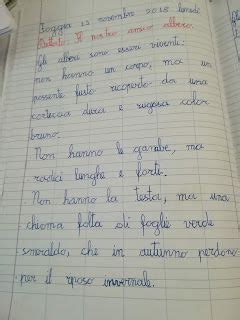 Foggia 12 novembre 2018 lunedì
Dettato: Il nostro amico albero.
Gli alberi sono esseri viventi:
non hanno un corpo, ma un
possente fusto ricoperto da una
corteccia dura e rugosa color
bruno.
Non hanno le gambe, ma
radici lunghe e forti.
Non hanno la testa, ma una
chioma folta di foglie verde
smeraldo, che in autunno perdono
per il riposo invernale.